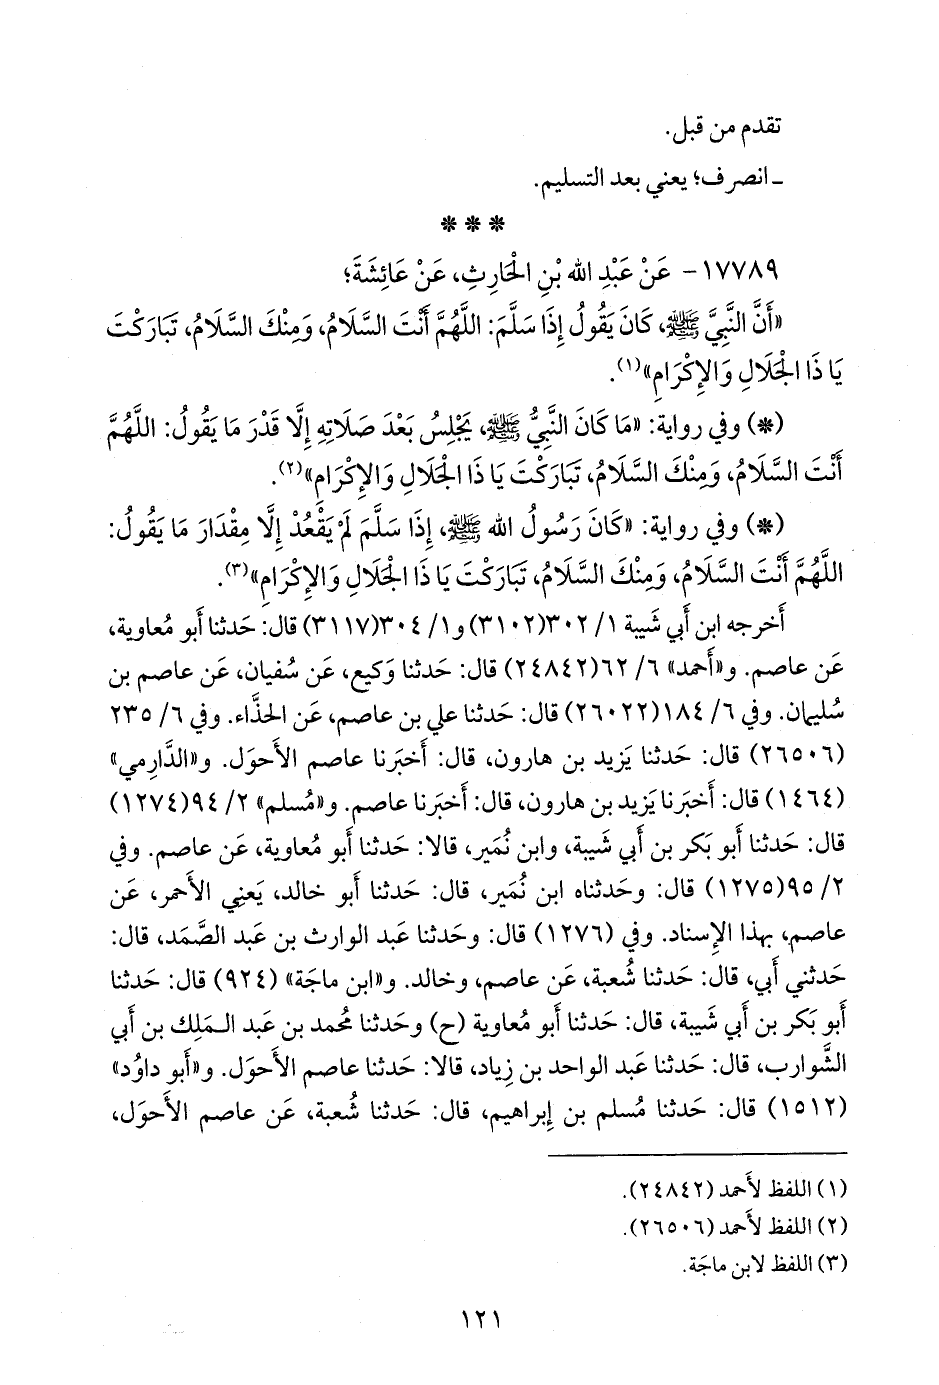 تقدم من قبل.
ـ انصرف؛ يعني بعد التسليم.
* * *
١٧٧٨٩ - عَنْ عَبْدِ الله بْنِ الْحَارِثِ، عَنْ عَائِشَةَ؛
«أَنَّ النَّبِيَّ ﷺ، كَانَ يَقُولُ إِذَا سَلَّمَ: اللَّهُمَّ أَنْتَ السَّلَامُ، وَمِنْكَ السَّلَامُ، تَبَارَكْتَ
يَا ذَا الْجَلَالِ وَالإِكْرَامِ»(١).
(*) وفي رواية: «مَا كَانَ النَّبِيُّ ﷺ، يَجْلِسُ بَعْدَ صَلَاتِهِ إِلَّا قَدْرَ مَا يَقُولُ: اللَّهُمَّ
أَنْتَ السَّلَامُ، وَمِنْكَ السَّلَامُ، تَبَارَكْتَ يَا ذَا الْجَلَالِ وَالإِكْرَامِ»(٢).
(*) وفي رواية: «كَانَ رَسُولُ الله ﷺ، إِذَا سَلَّمَ لَمْ يَقْعُدْ إِلَّا مِقْدَارَ مَا يَقُولُ:
اللَّهُمَّ أَنْتَ السَّلَامُ، وَمِنْكَ السَّلَامُ، تَبَارَكْتَ يَا ذَا الْجَلَالِ وَالإِكْرَامِ»(٣).
أَخرجه ابن أَبي شَيبة ١/ ٣٠٢(٣١٠٢) و١/ ٣٠٤(٣١١٧) قال: حَدثنا أَبو مُعاوية،
عَن عاصم. و«أَحمد» ٦/ ٦٢(٢٤٨٤٢) قال: حَدثنا وَكيع، عَن سُفيان، عَن عاصم بن
سُليمان. وفي ٦/ ١٨٤(٢٦٠٢٢) قال: حَدثنا علي بن عاصم، عَن الحذَّاء. وفي ٦/ ٢٣٥
(٢٦٥٠٦) قال: حَدثنا يَزيد بن هارون، قال: أَخبَرنا عاصم الأَحوَل. و«الدَّارِمي»
(١٤٦٤) قال: أَخبَرنا يَزيد بن هارون، قال: أَخبَرنا عاصم. و«مُسلم» ٢/ ٩٤(١٢٧٤)
قال: حَدثنا أَبو بَكر بن أَبي شَيبة، وابن نُمَير، قالا: حَدثنا أَبو مُعاوية، عَن عاصم. وفي
٢/ ٩٥(١٢٧٥) قال: وحَدثناه ابن نُمَير، قال: حَدثنا أَبو خالد، يَعنِي الأَحمر، عَن
عاصم، بهذا الإِسناد. وفي (١٢٧٦) قال: وحَدثنا عَبد الوارث بن عَبد الصَّمَد، قال:
حَدثني أَبي، قال: حَدثنا شُعبة، عَن عاصم، وخالد. و«ابن ماجَة» (٩٢٤) قال: حَدثنا
أَبو بَكر بن أَبي شَيبة، قال: حَدثنا أَبو مُعاوية (ح) وحَدثنا مُحمد بن عَبد الـمَلِك بن أَبي
الشَّوارب، قال: حَدثنا عَبد الواحد بن زِياد، قالا: حَدثنا عاصم الأَحوَل. و«أَبو داوُد»
(١٥١٢) قال: حَدثنا مُسلم بن إِبراهيم، قال: حَدثنا شُعبة، عَن عاصم الأَحوَل،
(١) اللفظ لأَحمد (٢٤٨٤٢).
(٢) اللفظ لأَحمد (٢٦٥٠٦).
(٣) اللفظ لابن ماجَة.
١٢١